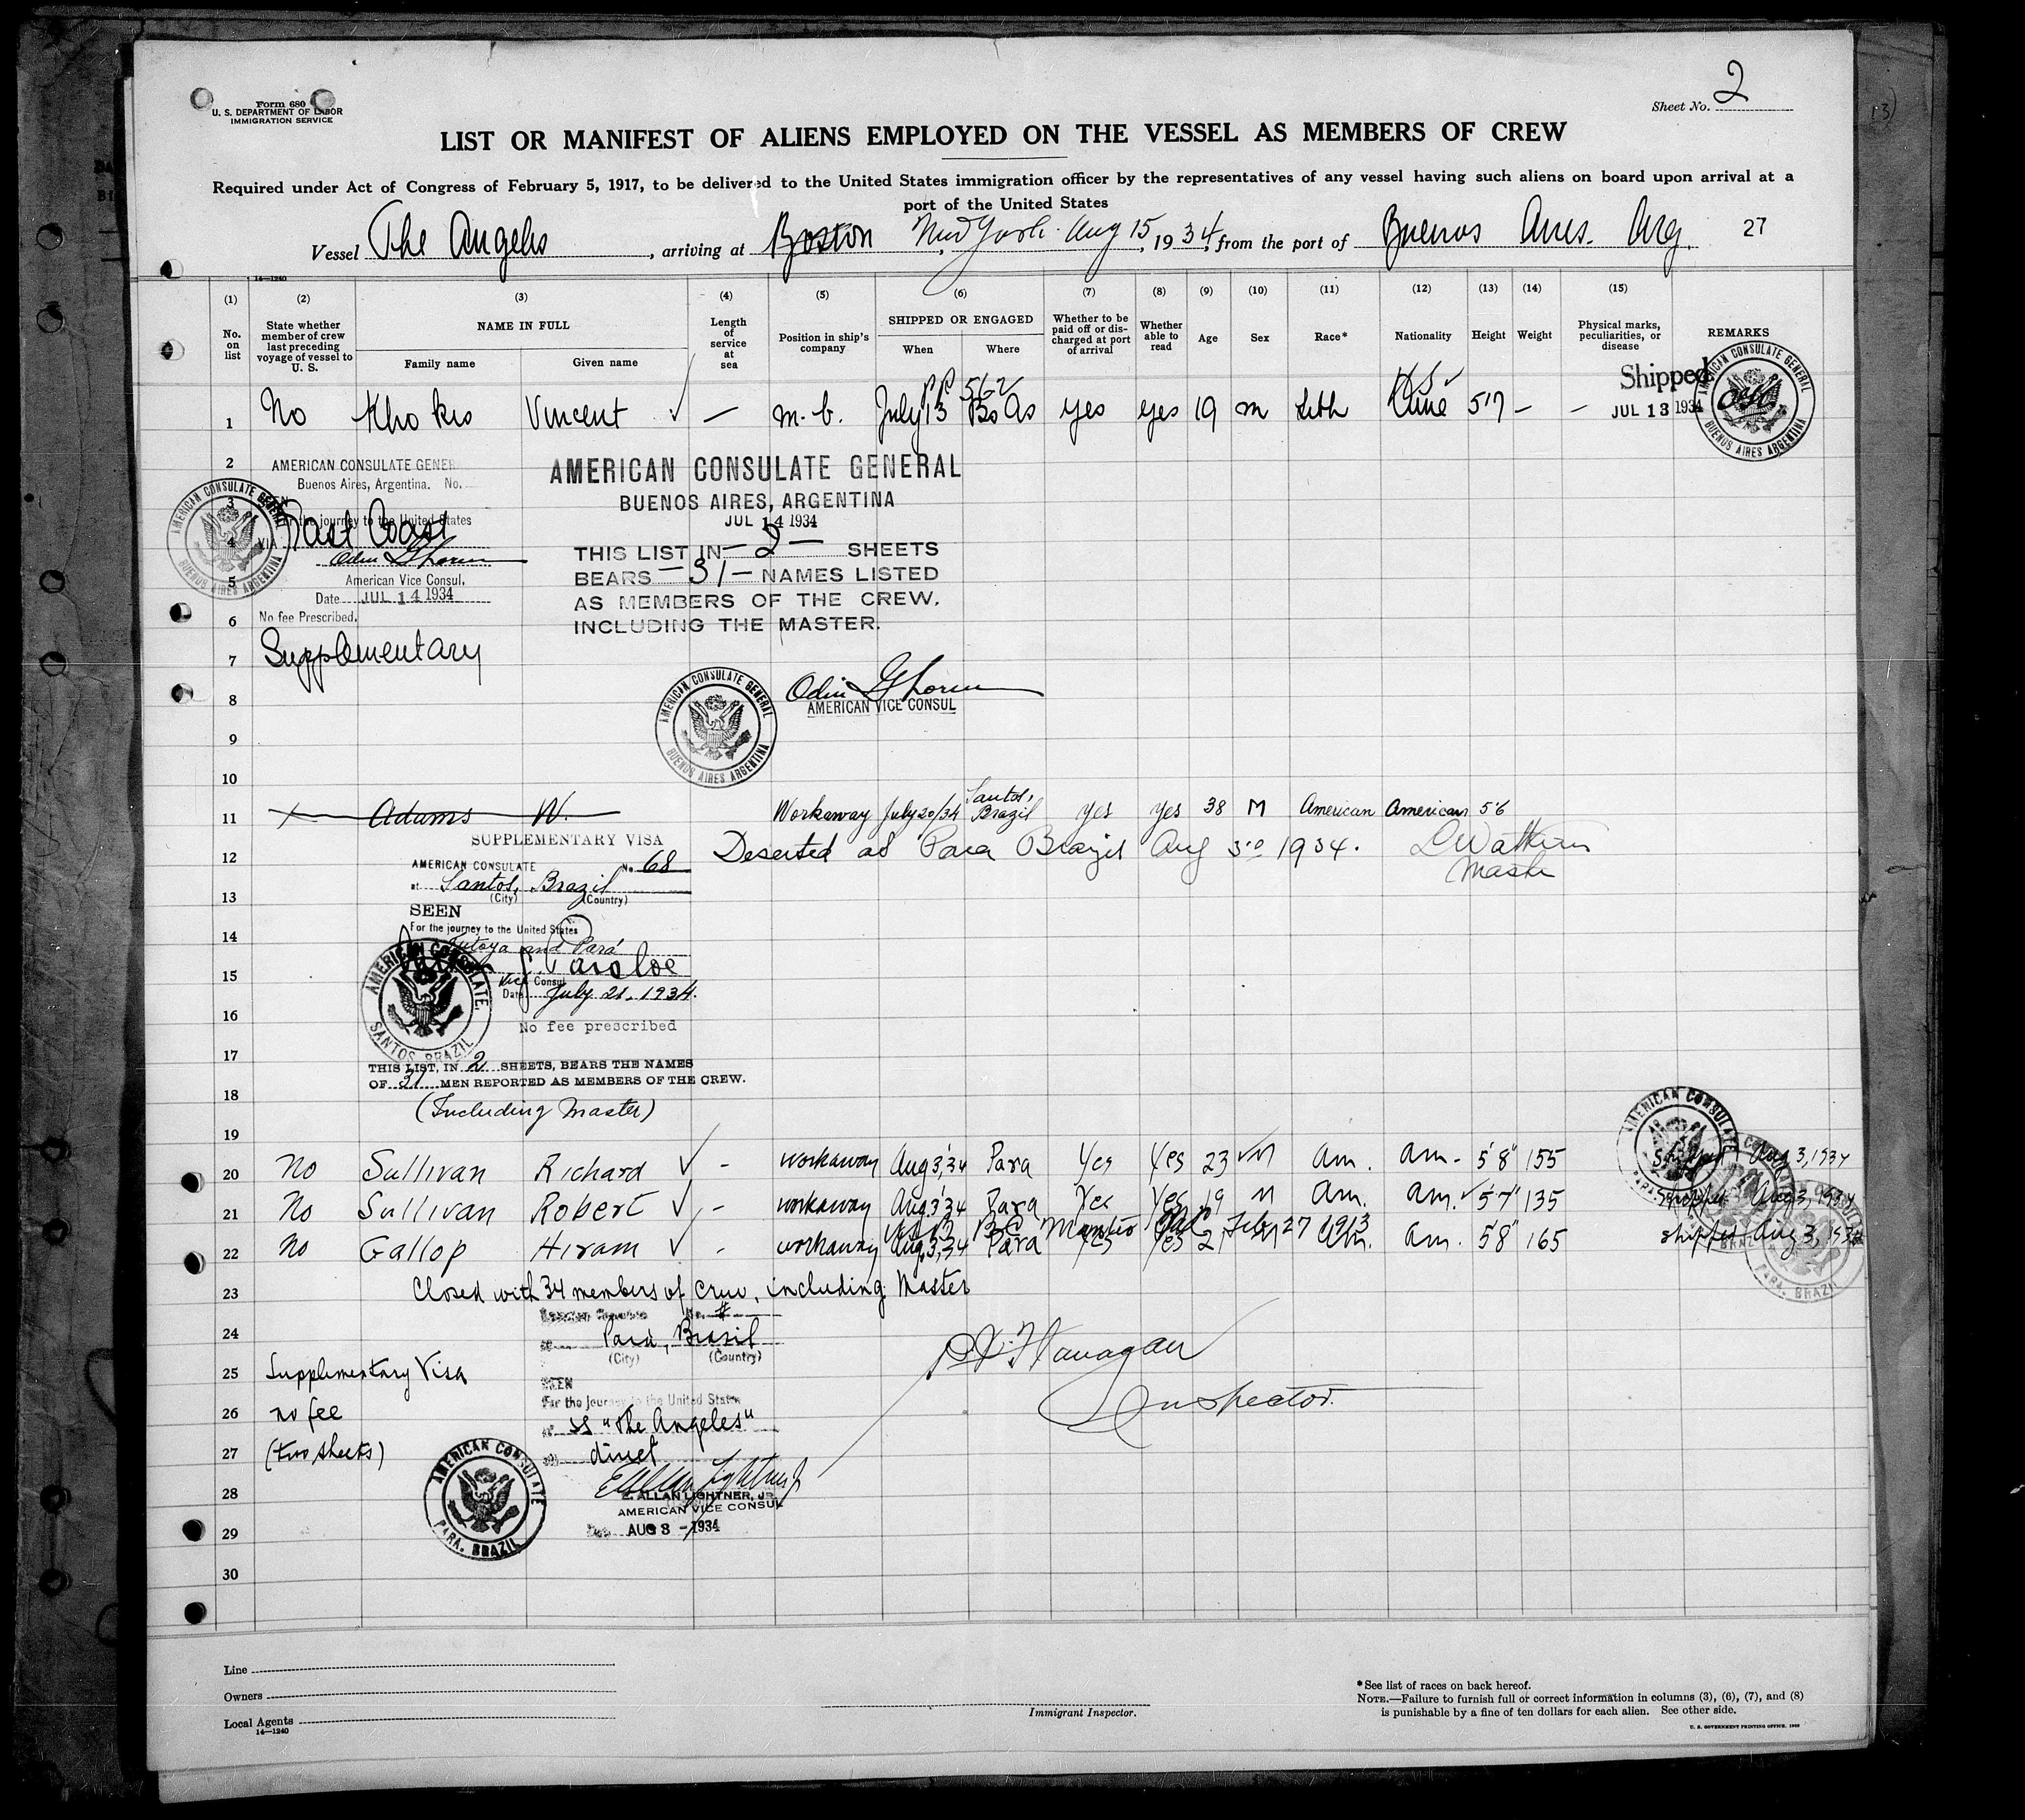 Form 680
U. S. DEPARTMENT OF LABOR
IMMIGRATION SERVICE
Sheet No. 2
13)
LIST OR MANIFEST OF ALIENS EMPLOYED ON THE VESSEL AS MEMBERS OF CREW
Required under Act of Congress of February 5, 1917, to be delivered to the United States immigration officer by the representatives of any vessel having such aliens on board upon arrival at a
port of the United States
Vessel The Angeles, arriving at Boston New York. Aug 15, 1934, from the port of Buenos Aires. Arg. 27
14—1240
(1) (2) (3) (4) (5) (6) (7) (8) (9) (10) (11) (12) (13) (14) (15)
No. on list
State whether member of crew last preceding voyage of vessel to U. S.
NAME IN FULL
Family name Given name
Length of service at sea
Position in ship's company
SHIPPED OR ENGAGED
When Where
Whether to be paid off or discharged at port of arrival
Whether able to read
Age
Sex
Race*
Nationality
Height
Weight
Physical marks, peculiarities, or disease
REMARKS
PP 562
1 No Vincent — m. b. July 13 Bs As yes yes 19 m Lith 5'7 — — Shipped JUL 13 1934
AMERICAN CONSULATE GENERAL BUENOS AIRES ARGENTINA
2
AMERICAN CONSULATE GENER
Buenos Aires, Argentina. No.
3
For the journey to the United States
4
VIA East Coast
5
American Vice Consul.
Date JUL 14 1934
6
No fee Prescribed.
7 Supplementary
AMERICAN CONSULATE GENERAL BUENOS AIRES ARGENTINA
AMERICAN CONSULATE GENERAL
BUENOS AIRES, ARGENTINA
JUL 14 1934
THIS LIST IN —2— SHEETS
BEARS —31— NAMES LISTED
AS MEMBERS OF THE CREW,
INCLUDING THE MASTER.
8
AMERICAN VICE CONSUL
AMERICAN CONSULATE GENERAL BUENOS AIRES ARGENTINA
9
10
11 Adams W. Workaway July 20/34 Santos, Brazil yes yes 38 M American American 5'6
12 Deserted at Para Brazil Aug 3rd 1934. Watkins
Master
SUPPLEMENTARY VISA
AMERICAN CONSULATE No. 68
at Santos, Brazil
(City) (Country)
13
SEEN
For the journey to the United States
14
Tutoya and Pará
15
Vice Consul
Date July 21, 1934.
16
No fee prescribed
AMERICAN CONSULATE. SANTOS BRAZIL
17
THIS LIST, IN 2 SHEETS, BEARS THE NAMES
OF 31 MEN REPORTED AS MEMBERS OF THE CREW.
18
(Including Master)
19
20 No Sullivan Richard - workaway Aug 3,'34 Para Yes Yes 23 M am. am. 5'8" 155 Shipped Aug 3, 1934
21 No Sullivan Robert - workaway Aug 3,'34 Para Yes Yes 19 M am. am. 5'7" 135 shipped Aug 3, 1934
Feb 27 1913
22 No Gallop Hiram - workaway Aug 3,'34 Para Yes Yes 21 M am. am. 5'8" 165 shipped Aug 3, 1934
AMERICAN CONSULATE PARA, BRAZIL
23 Closed with 34 members of crew, including Master
24
at Para, Brasil
(City) (Country)
Flanagan
Inspector.
25 Supplementary Visa
SEEN
For the journey to the United States
26 no fee
SS "The Angeles"
27 (two sheets)
direct
28
E. ALLAN LIGHTNER, JR.
AMERICAN VICE CONSUL
29
AUG 3 - 1934
AMERICAN CONSULATE PARA, BRAZIL
30
Line
Owners
Local Agents
14—1240
Immigrant Inspector.
*See list of races on back hereof.
NOTE.—Failure to furnish full or correct information in columns (3), (6), (7), and (8)
is punishable by a fine of ten dollars for each alien. See other side.
U. S. GOVERNMENT PRINTING OFFICE.